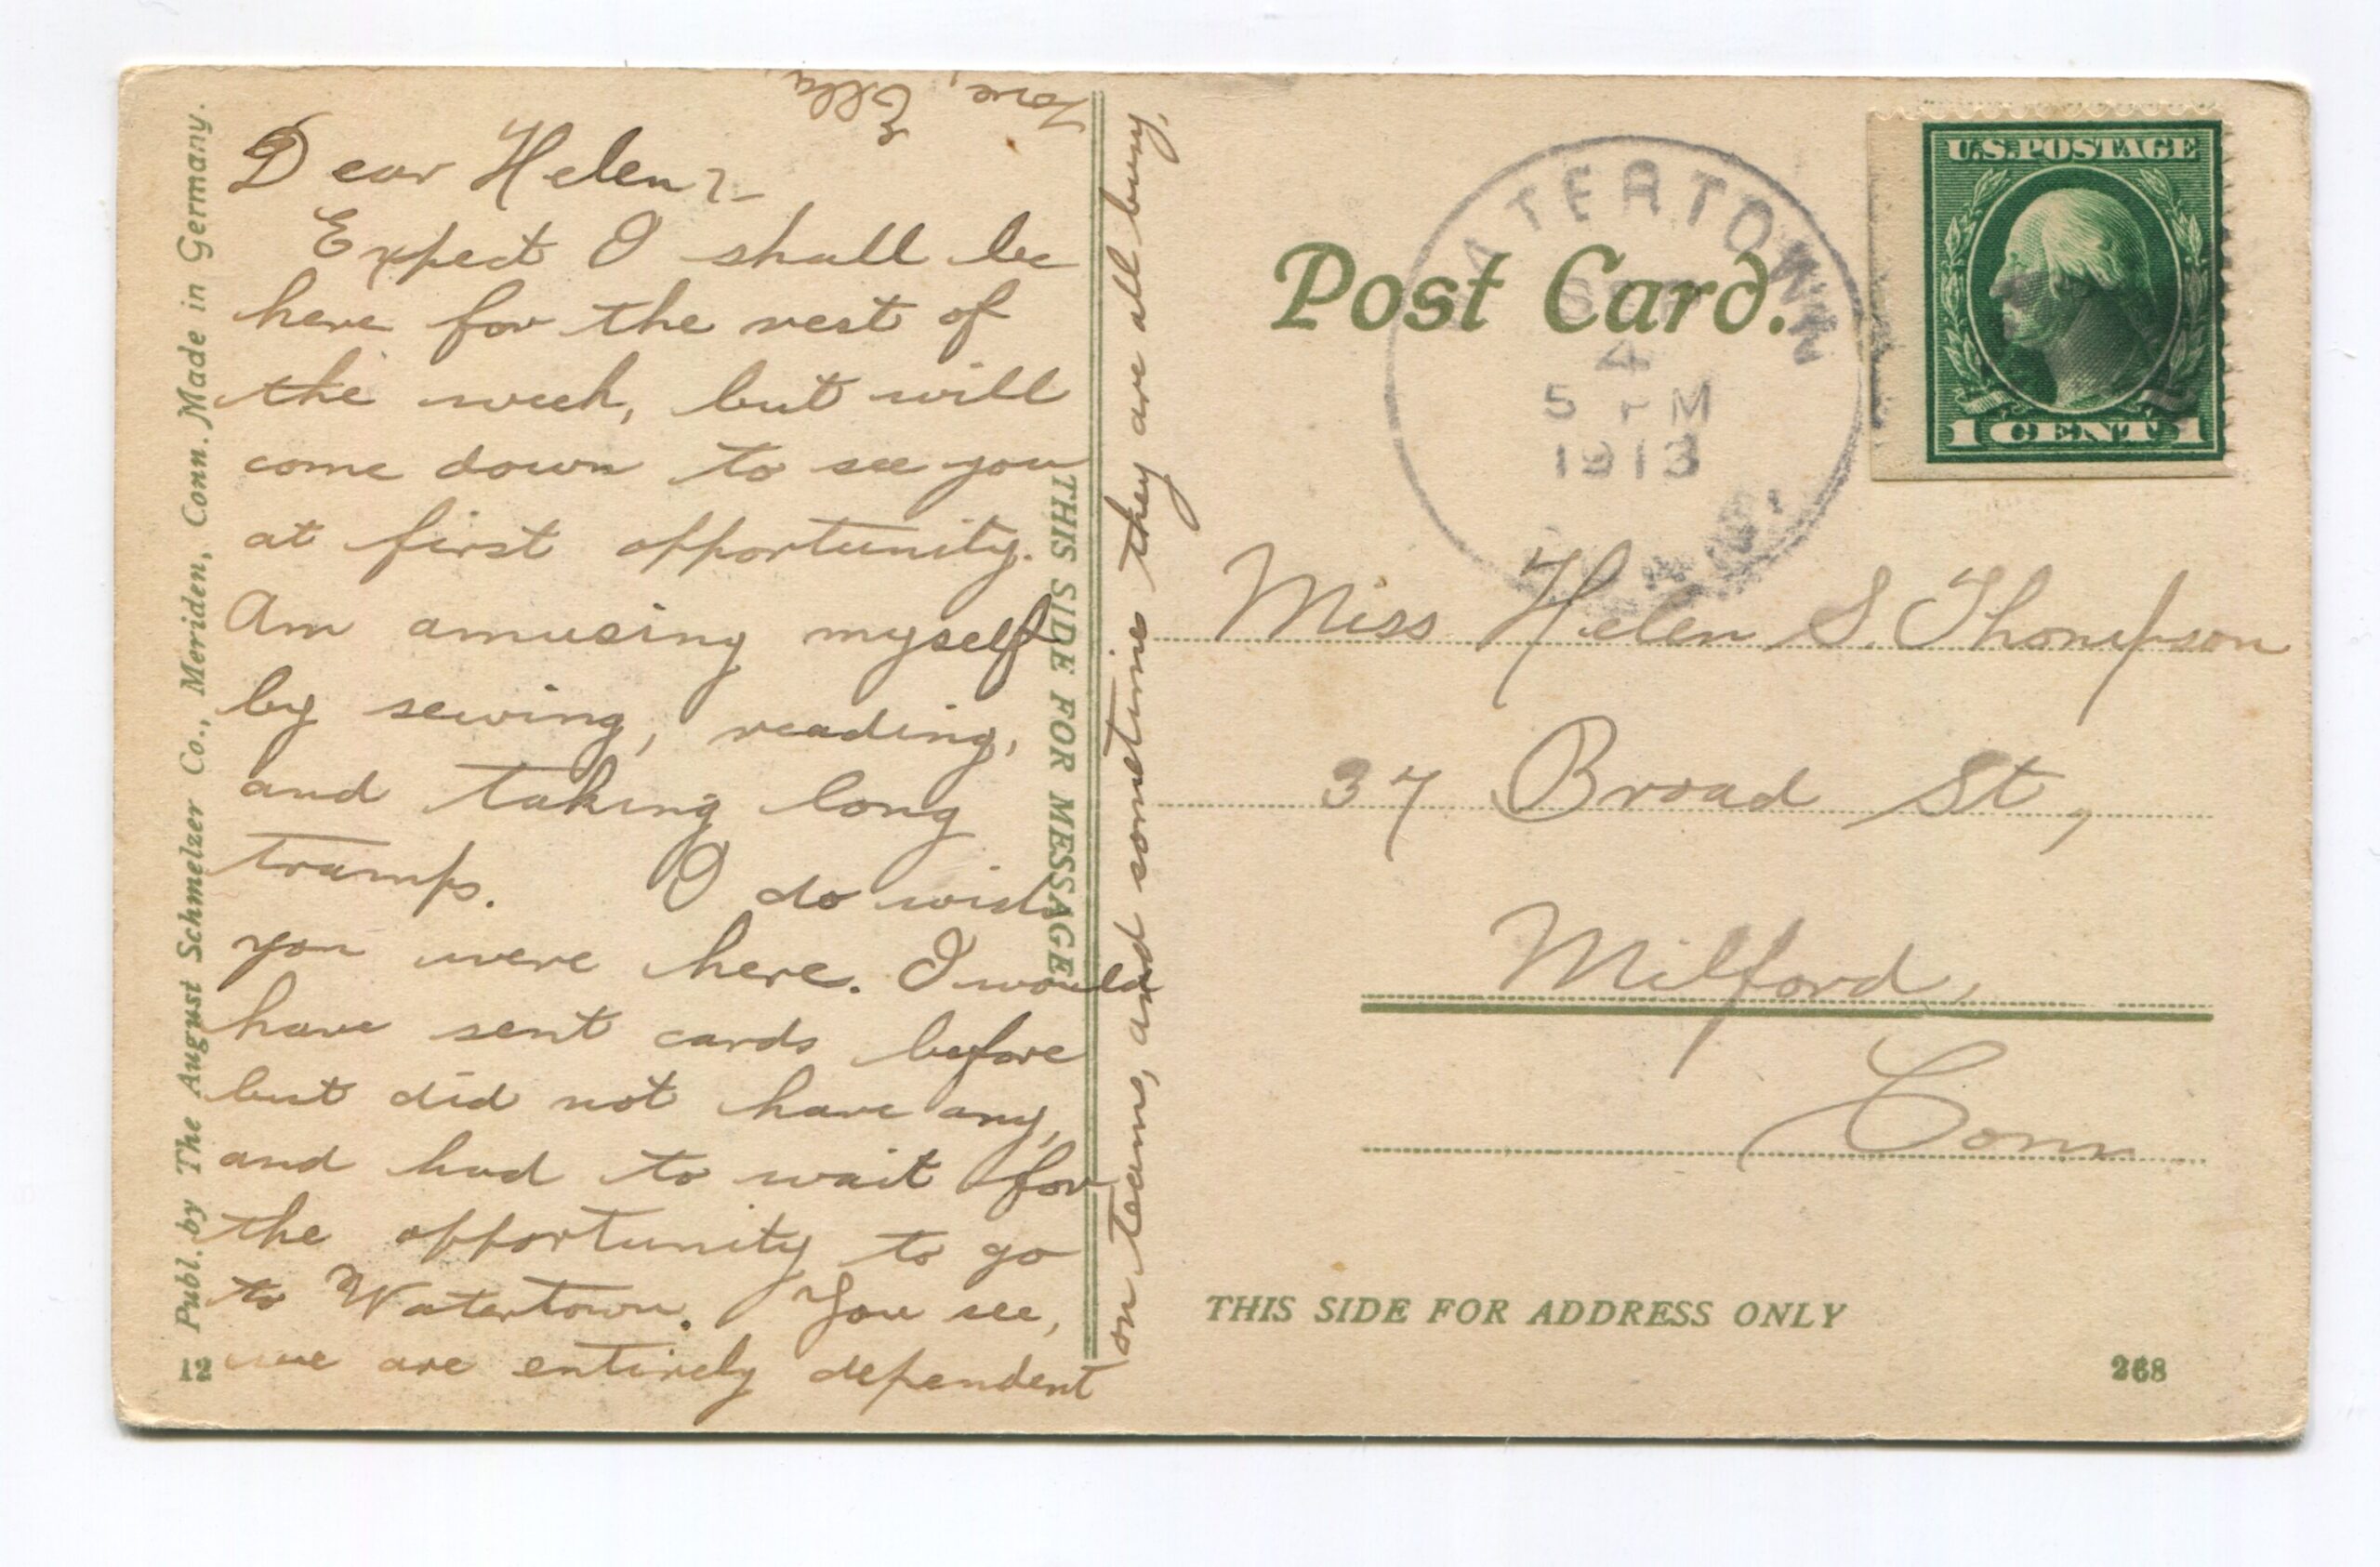 Dear Helen:-
Expect I shall be
here for the rest of
the week, but will
come down to see you
at first opportunity.
Am amusing myself
by sewing, reading,
and taking long
tramps. I do wish
you were here. I would
have sent cards before
but did not have any,
and had to wait for
the opportunity to go
to Watertown. You see,
we are entirely dependent
on teams, and sometimes they are all busy.
Love, Ella.
Publ. by The August Schmelzer Co., Meriden, Conn. Made in Germany.
12
THIS SIDE FOR MESSAGE
Post Card.
WATERTOWN
SEP
4
5 PM
1913
CONN.
U.S. POSTAGE
1 CENT 1
Miss Helen S. Thompson
37 Broad St.,
Milford,
Conn
THIS SIDE FOR ADDRESS ONLY
268